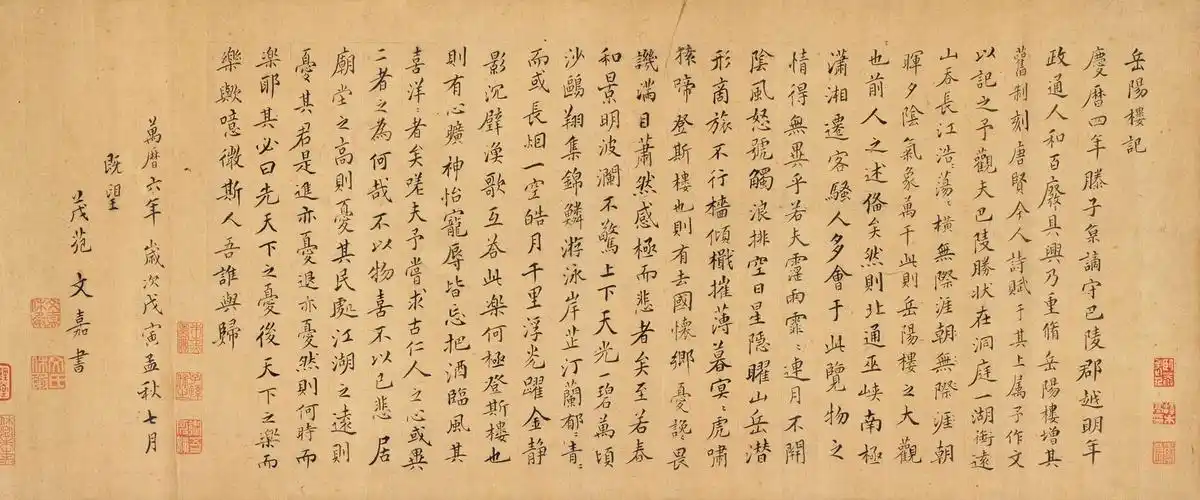 岳陽樓記
慶曆四年滕子京謫守巴陵郡越明年
政通人和百廢具興乃重脩岳陽樓增其
舊制刻唐賢今人詩賦于其上属予作文
以記之予觀夫巴陵勝狀在洞庭一湖銜遠
山吞長江浩〻蕩〻橫無際涯朝無際涯朝
暉夕陰氣象萬千此則岳陽樓之大觀
也前人之述俻矣然則北通巫峽南極
瀟湘遷客騷人多會于此覽物之
情得無異乎若夫霪雨霏〻連月不開
陰風怒號觸浪排空日星隱曜山岳潜
形商旅不行檣傾檝摧薄暮冥〻虎嘯
猿啼登斯樓也則有去國懷鄉憂讒畏
譏滿目蕭然感極而悲者矣至若春
和景明波瀾不驚上下天光一碧萬頃
沙鷗翔集錦鱗游泳岸芷汀蘭郁〻青〻
而或長烟一空皓月千里浮光躍金静
影沉璧漁歌互答此樂何極登斯樓也
則有心曠神怡寵辱皆忘把酒臨風其
喜洋〻者矣嗟夫予嘗求古仁人之心或異
二者之為何哉不以物喜不以己悲居
廟堂之高則憂其民處江湖之遠則
憂其君是進亦憂退亦憂然則何時而
樂耶其必曰先天下之憂後天下之樂而
樂歟噫微斯人吾誰與歸
萬曆六年歲次戊寅孟秋七月
既望
茂苑文嘉書